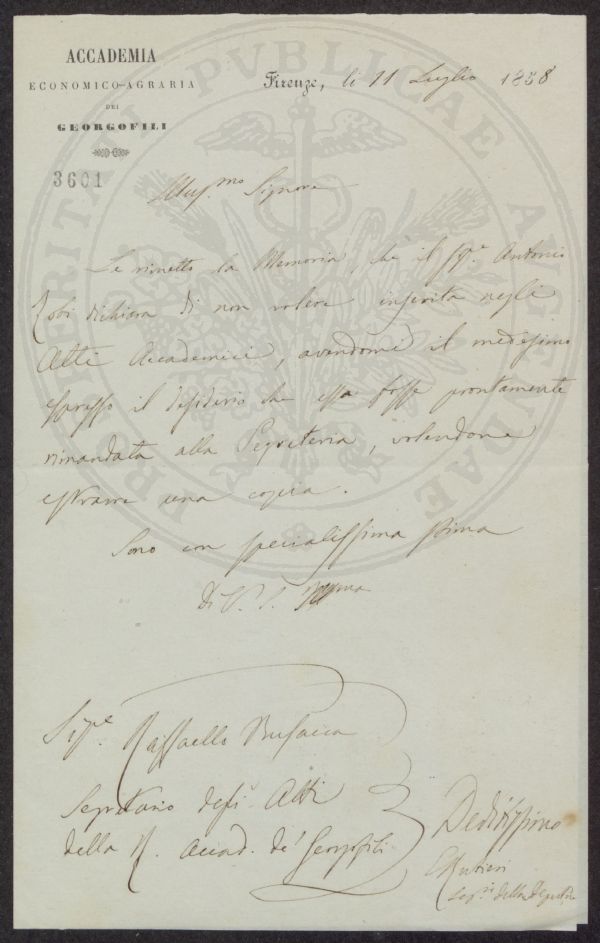 ACCADEMIA
ECONOMICO-AGRARIA
DEI
GEORGOFILI
3601
Firenze, li 11 Luglio 1858
Illus.mo Signore
Le rimetto la Memoria, che il Sig.e Antonio
Zobi dichiara di non volere inserita negli
Atti Accademici, avendomi il medesimo
espresso il desiderio che essa fosse prontamente
rimandata alla Segreteria, volendone
estrarre una copia.
Sono con specialissima stima
Di V. S.
Sig.e Raffaello Busacca
Segretario degli Atti
della R. Accad. de' Georgofili
Devotissimo
PRO MERITA PUBLICAE AUGENDAE